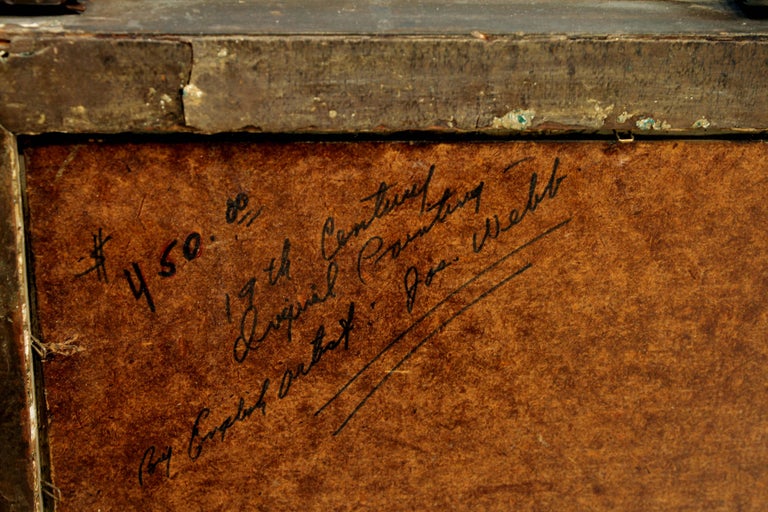 $ 450.00
19th Century
Original Painting -
By English artist: Jas. Webb.